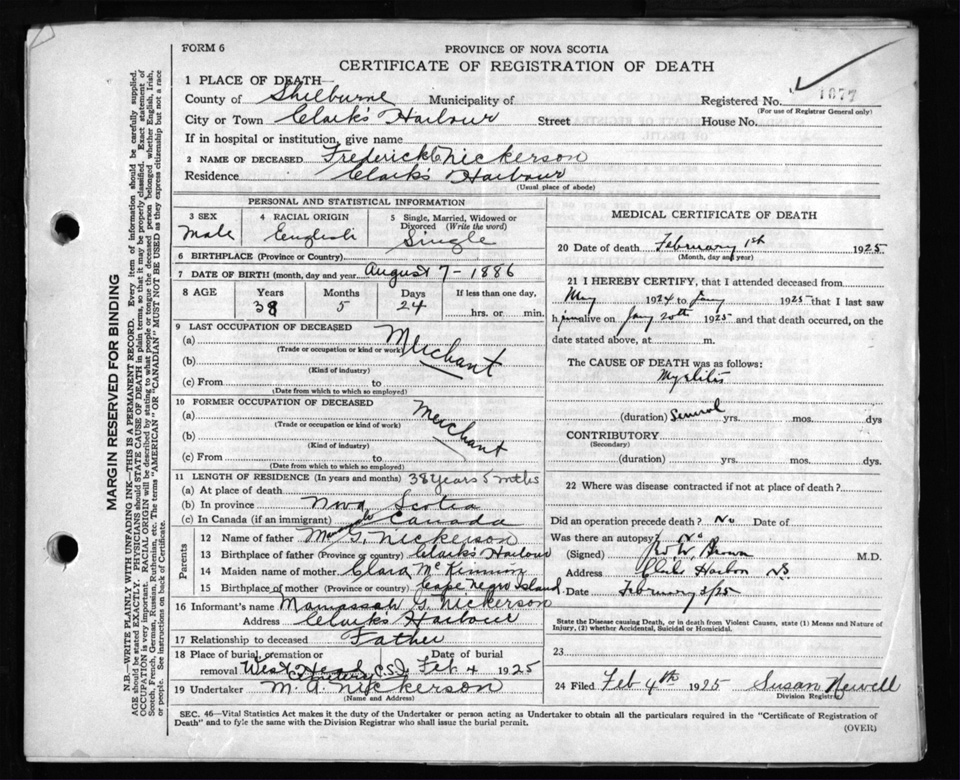 FORM 6
PROVINCE OF NOVA SCOTIA
CERTIFICATE OF REGISTRATION OF DEATH
1 PLACE OF DEATH
County of Shelburne Municipality of Registered No. 1877
(For use of Registrar General only)
City or Town Clark's Harbour Street House No.
If in hospital or institution, give name
2 NAME OF DECEASED Frederick C Nickerson
Residence Clark's Harbour
(Usual place of abode)
PERSONAL AND STATISTICAL INFORMATION
3 SEX Male
4 RACIAL ORIGIN English
5 Single, Married, Widowed or Divorced (Write the word) Single
6 BIRTHPLACE (Province or Country)
7 DATE OF BIRTH (month, day and year) August 7 - 1886
8 AGE Years Months Days If less than one day,
38 5 24 hrs. or min.
9 LAST OCCUPATION OF DECEASED
(a) Merchant
(Trade or occupation or kind or work)
(b)
(Kind of industry)
(c) From to
(Date from which to which so employed)
10 FORMER OCCUPATION OF DECEASED
(a) Merchant
(Trade or occupation or kind of work)
(b)
(Kind of industry)
(c) From to
(Date from which to which so employed)
11 LENGTH OF RESIDENCE (In years and months) 38 years 5 mths
(a) At place of death
(b) In province Nova Scotia
(c) In Canada (if an immigrant) Canada
Parents
12 Name of father G. Nickerson
13 Birthplace of father (Province or country) Clark's Harbour
14 Maiden name of mother Clara McKinnon
15 Birthplace of mother (Province or country) Cape Negro Island
16 Informant's name Manassah G. Nickerson
Address Clark's Harbour
17 Relationship to deceased Father
18 Place of burial, cremation or Date of burial
removal West Head Cemetery C.S.I Feb 4 1925
19 Undertaker M. A. Nickerson
(Name and Address)
MEDICAL CERTIFICATE OF DEATH
20 Date of death February 1st 1925
(Month, day and year)
21 I HEREBY CERTIFY, that I attended deceased from
May 1924 to Jany 1925 that I last saw
h im alive on Jany 20th 1925 and that death occurred, on the
date stated above, at m.
The CAUSE OF DEATH was as follows:
Myelitis
(duration) Several yrs. mos. dys
CONTRIBUTORY
(Secondary)
(duration) yrs. mos. dys.
22 Where was disease contracted if not at place of death?
Did an operation precede death? No Date of
Was there an autopsy? No
(Signed) W. Brown M.D.
Address Clarks Harbor N.S.
Date February 2/25
State the Disease causing Death, or in death from Violent Causes, state (1) Means and Nature of
Injury, (2) whether Accidental, Suicidal or Homicidal.
23
24 Filed Feb 4th 1925 Susan Newell
Division Registrar
SEC. 46—Vital Statistics Act makes it the duty of the Undertaker or person acting as Undertaker to obtain all the particulars required in the "Certificate of Registration of
Death" and to file the same with the Division Registrar who shall issue the burial permit.
(OVER)
MARGIN RESERVED FOR BINDING
N.B.—WRITE PLAINLY WITH UNFADING INK—THIS IS A PERMANENT RECORD. Every item of information should be carefully supplied.
AGE should be stated EXACTLY. PHYSICIANS should STATE CAUSE OF DEATH in plain terms, so that it may be properly classified. Exact statement of
OCCUPATION is very important. RACIAL ORIGIN will be described by stating to what people or tongue the deceased person belonged whether English, Irish,
Scotch, French, German, Russian, Ruthenian, etc. The terms "AMERICAN" OR "CANADIAN" MUST NOT BE USED as they express citizenship but not a race
or people. See instructions on back of Certificate.